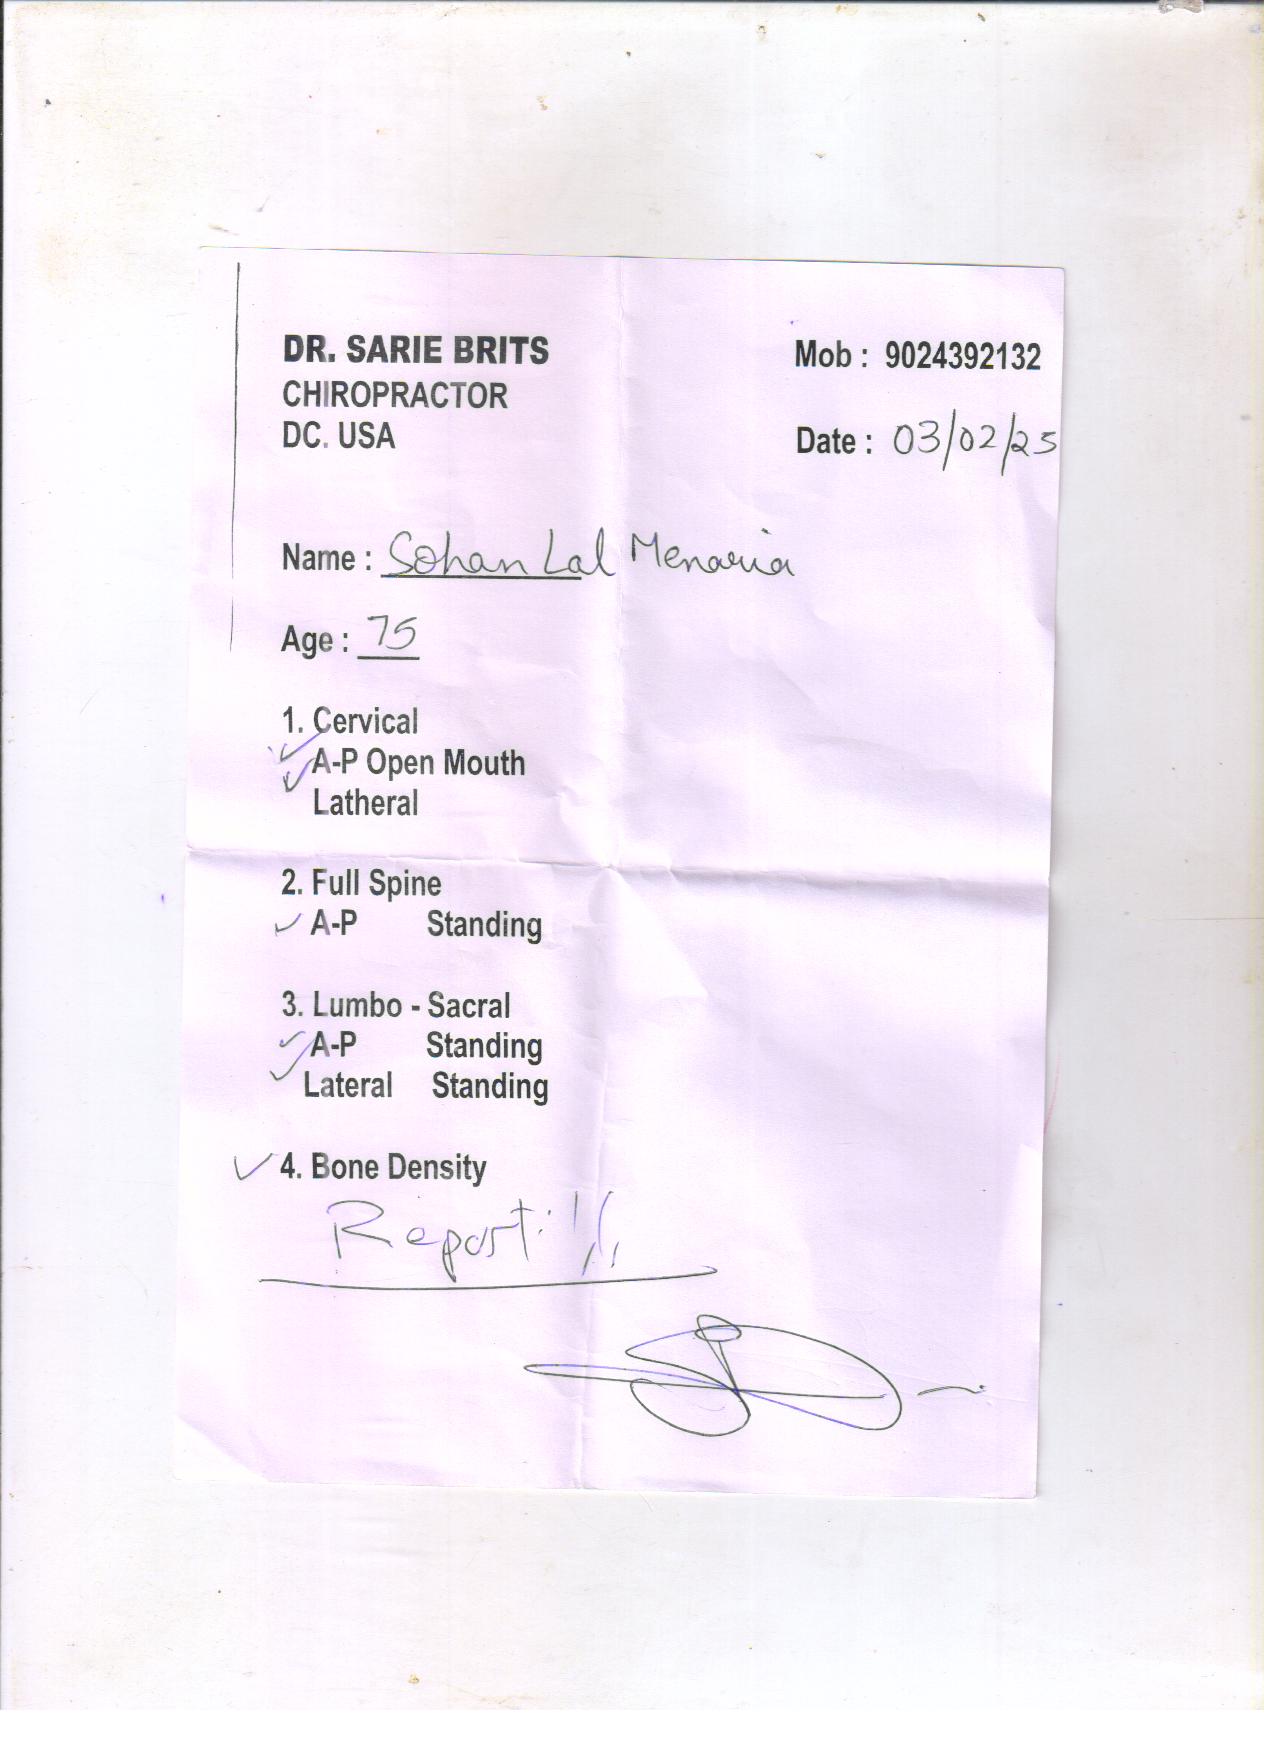 DR. SARIE BRITS
CHIROPRACTOR
DC. USA
Mob : 9024392132
Date : 03/02/25
Name : Sohan Lal Menaria
Age : 75
1. Cervical
A-P Open Mouth
Latheral
2. Full Spine
A-P Standing
3. Lumbo - Sacral
A-P Standing
Lateral Standing
4. Bone Density
Report